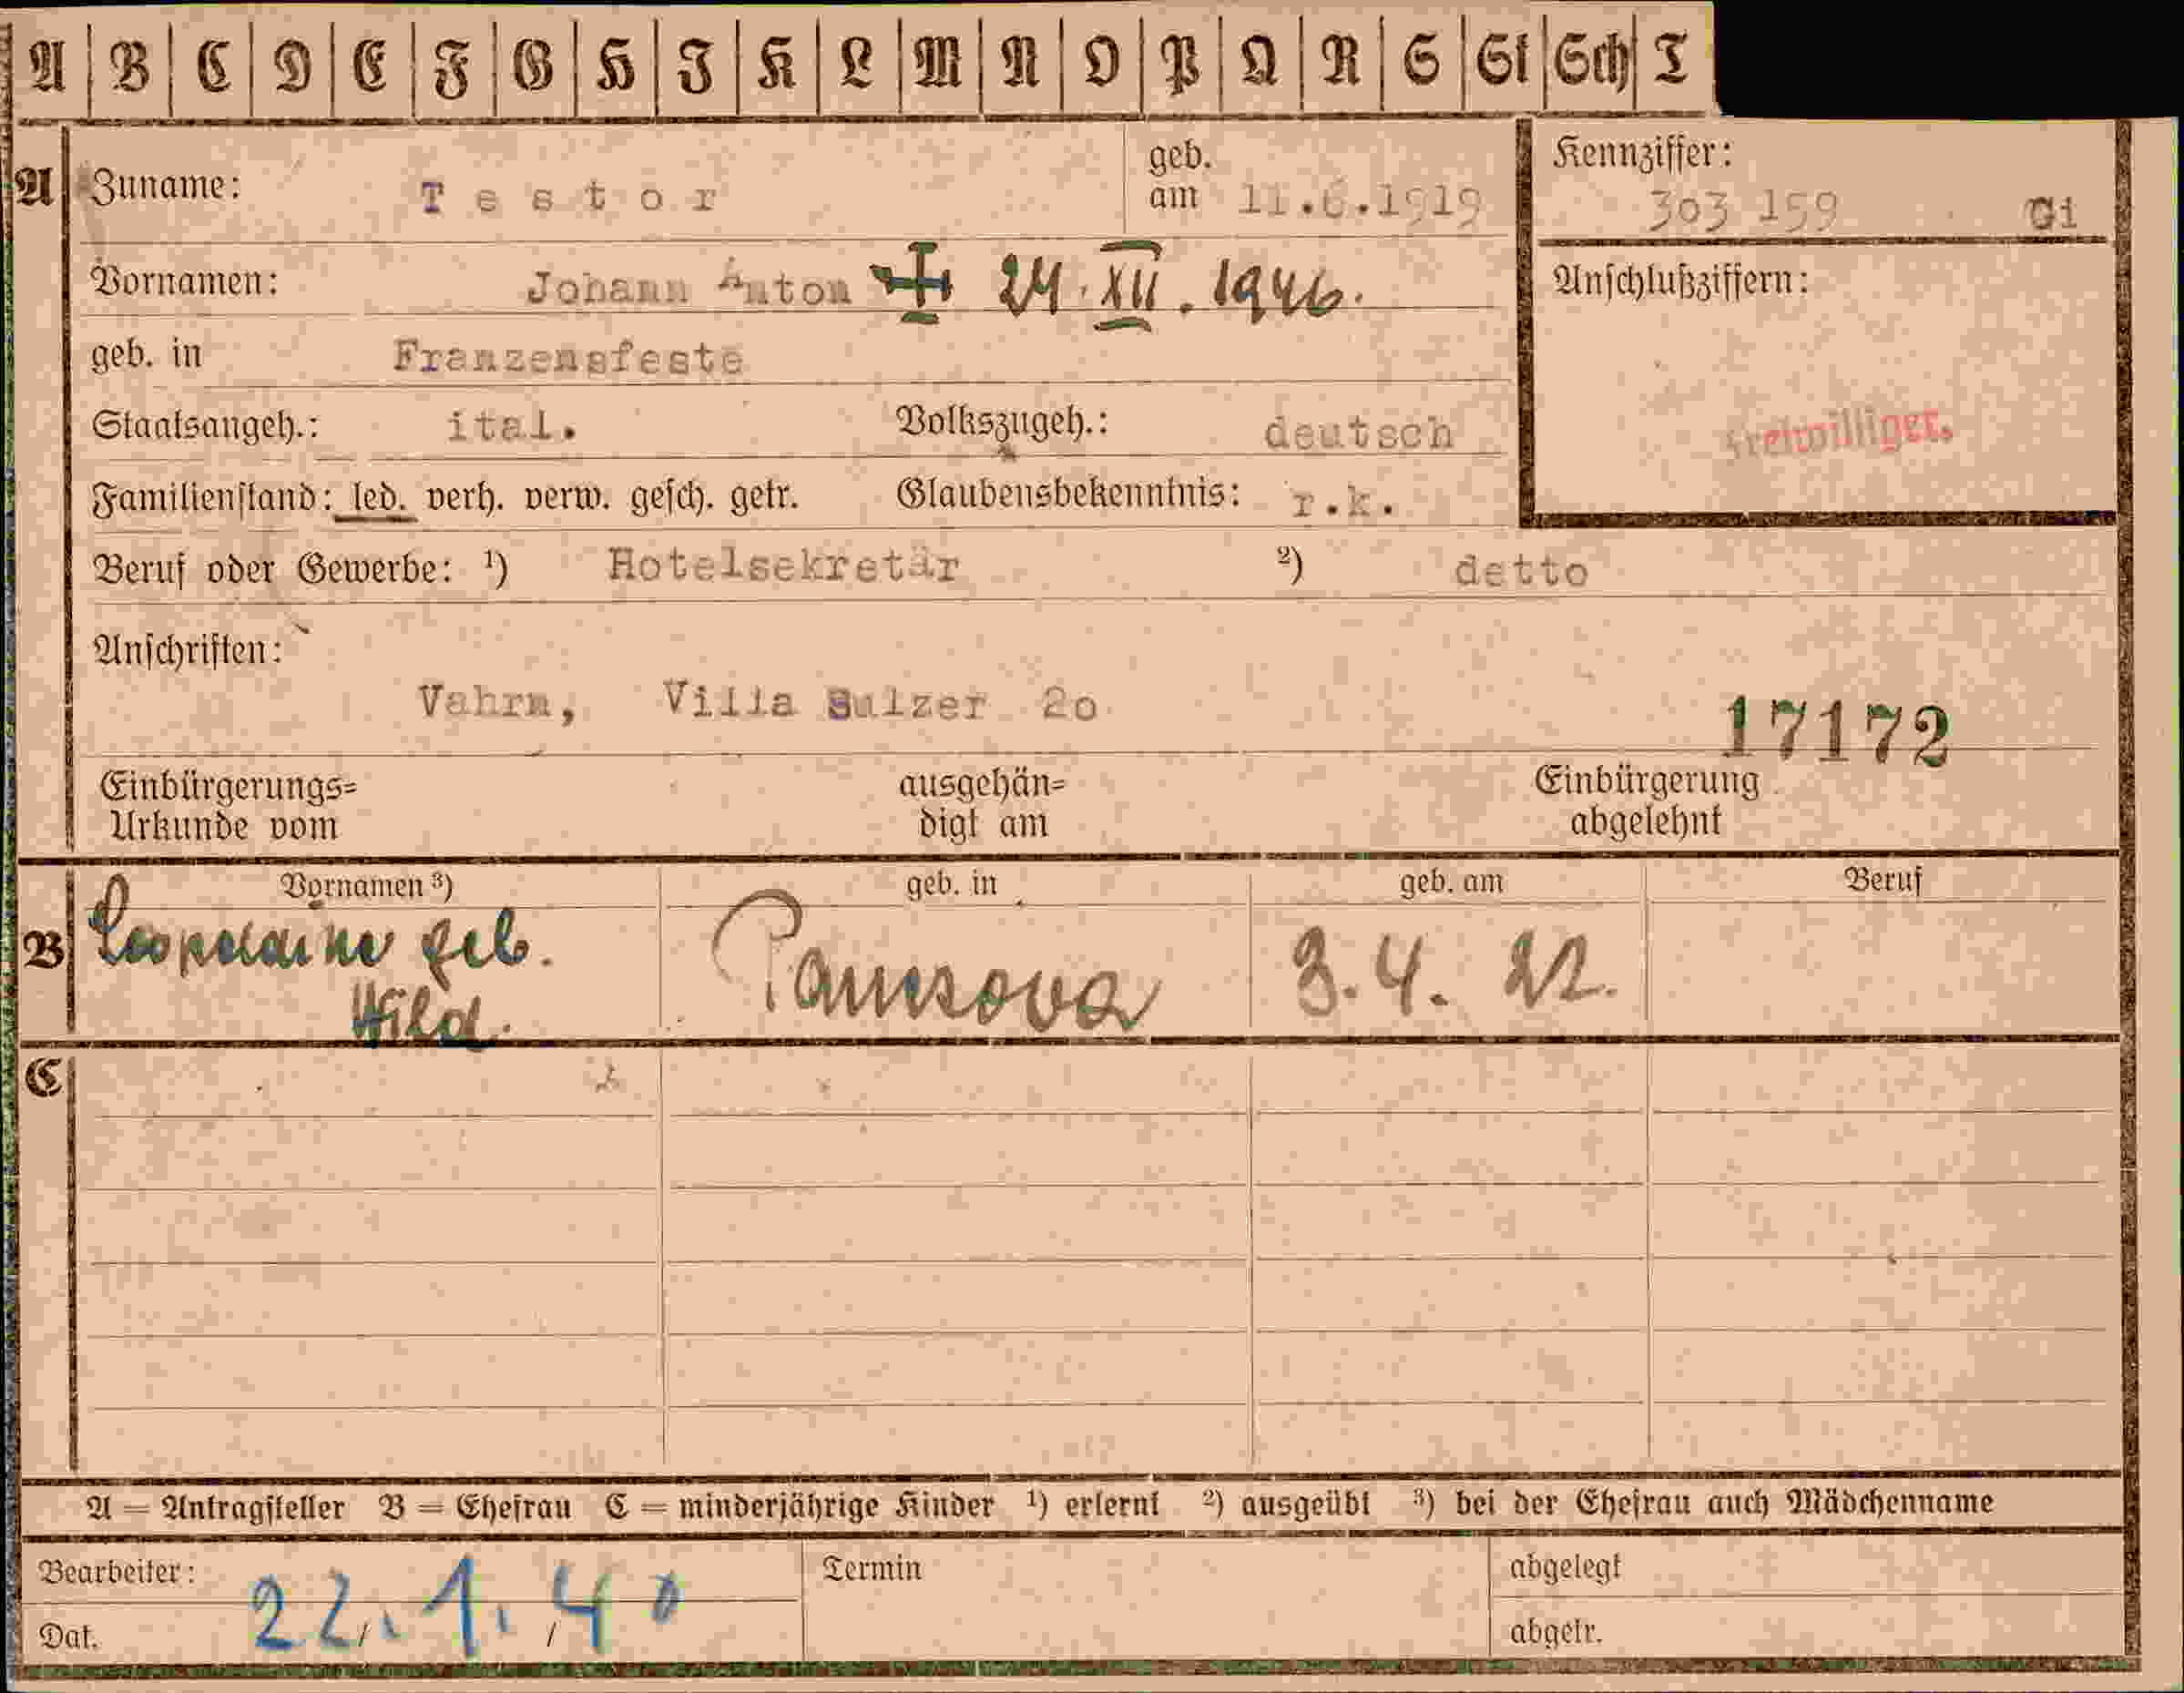 A B C D E F G H I K L M N O P Q R S St Sch T
A Zuname: Testor geb. am 11.6.1919 Kennziffer: 303 159 Gi
Vornamen: Johann Anton 24. XII. 1946. Anschlußziffern:
geb. in Franzensfeste
Staatsangeh.: ital. Volkszugeh.: deutsch freiwilliger.
Familienstand: led. verh. verw. gesch. getr. Glaubensbekenntnis: r.k.
Beruf oder Gewerbe: ¹) Hotelsekretär ²) detto
Anschriften:
Vahrn, Villa Sulzer 20
17172
Einbürgerungs= ausgehän= Einbürgerung
Urkunde vom digt am abgelehnt
Vornamen ³) geb. in geb. am Beruf
B Leopoldine geb. 3.4. 22.
Hild.
C
A = Antragsteller B = Ehefrau C = minderjährige Kinder ¹) erlernt ²) ausgeübt ³) bei der Ehefrau auch Mädchenname
Bearbeiter: Termin abgelegt
22.1.40
Dat. abgetr.